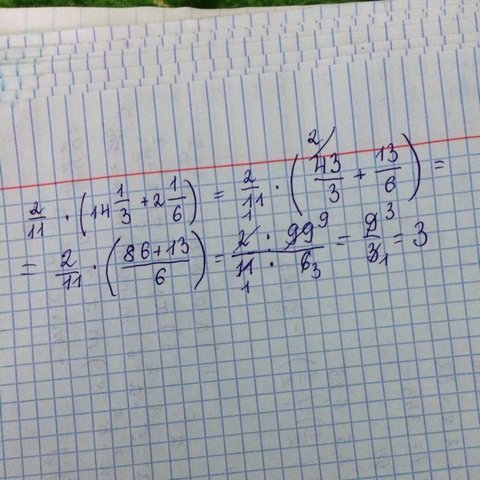 2/11 · (14 1/3 + 2 1/6) = 2/11 · (43/3 + 13/6) =
= 2/11 · ((86+13)/6) = 2/11 · 99/6 = 9/3 = 3